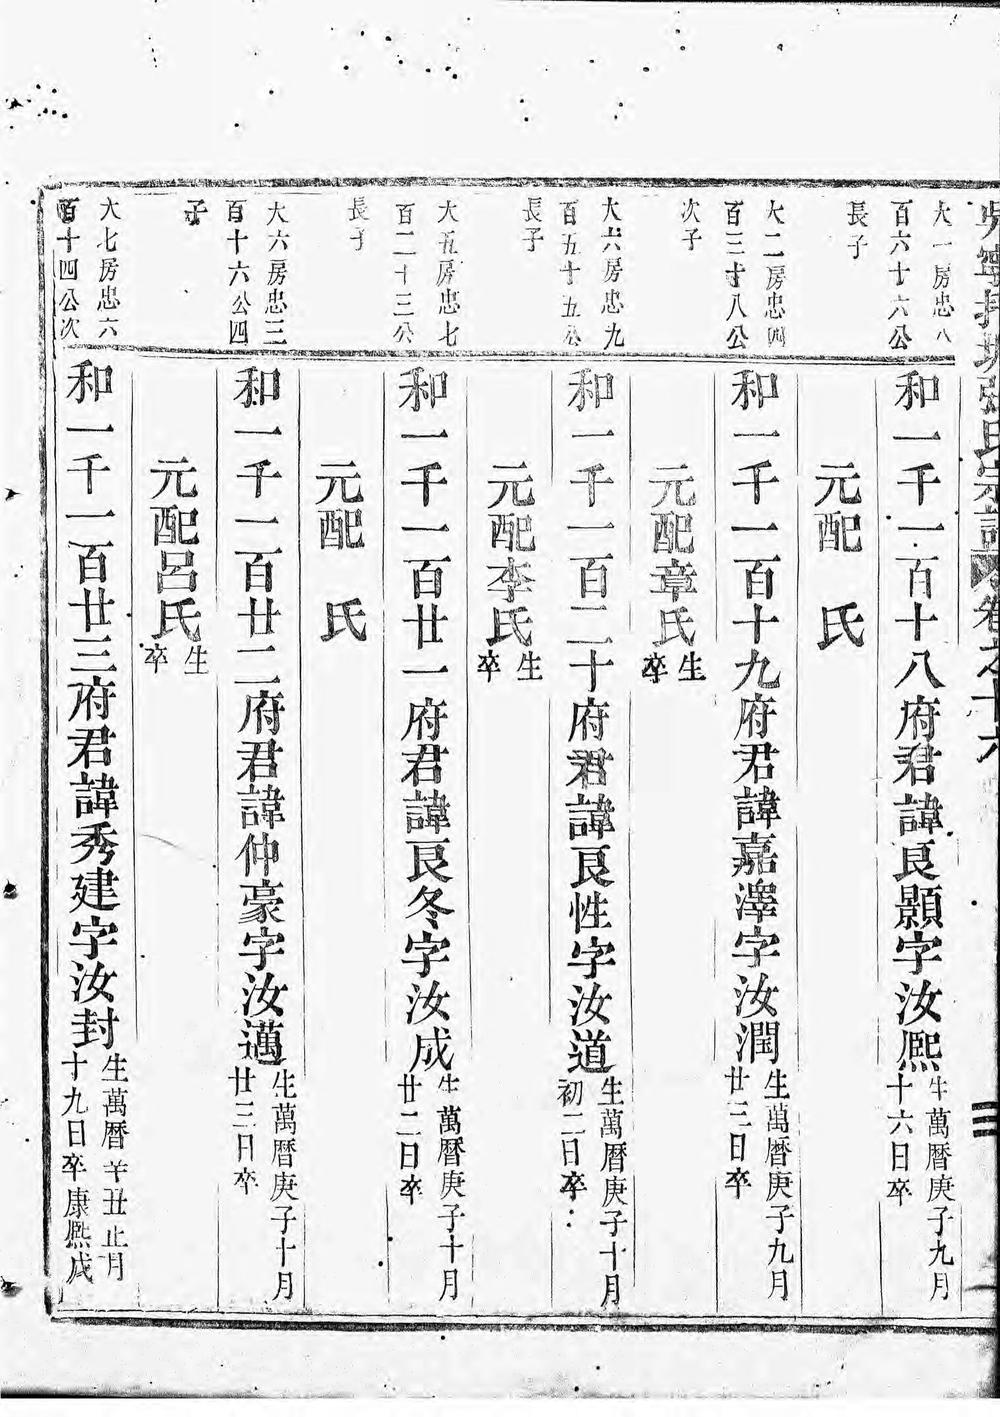 吳寧托塘張氏宗譜 卷之十六
三
大一房忠八
百六十六公
長子
和一千一百十八府君諱良顥字汝熈
生萬曆庚子九月
十六日卒
元配　氏
大二房忠四
百三十八公
次子
和一千一百十九府君諱嘉澤字汝潤
生萬曆庚子九月
廿三日卒
元配章氏
生
卒
大六房忠九
百五十五公
長子
和一千一百二十府君諱良性字汝道
生萬曆庚子十月
初二日卒
元配李氏
生
卒
大五房忠七
百二十三公
長子
和一千一百廿一府君諱良冬字汝成
生萬曆庚子十月
廿二日卒
元配　氏
大六房忠三
百十六公四
子
和一千一百廿二府君諱仲豪字汝邁
生萬曆庚子十月
廿三日卒
元配呂氏
生
卒
大七房忠六
百十四公次
和一千一百廿三府君諱秀建字汝封
生萬曆辛丑正月
十九日卒康熈戊